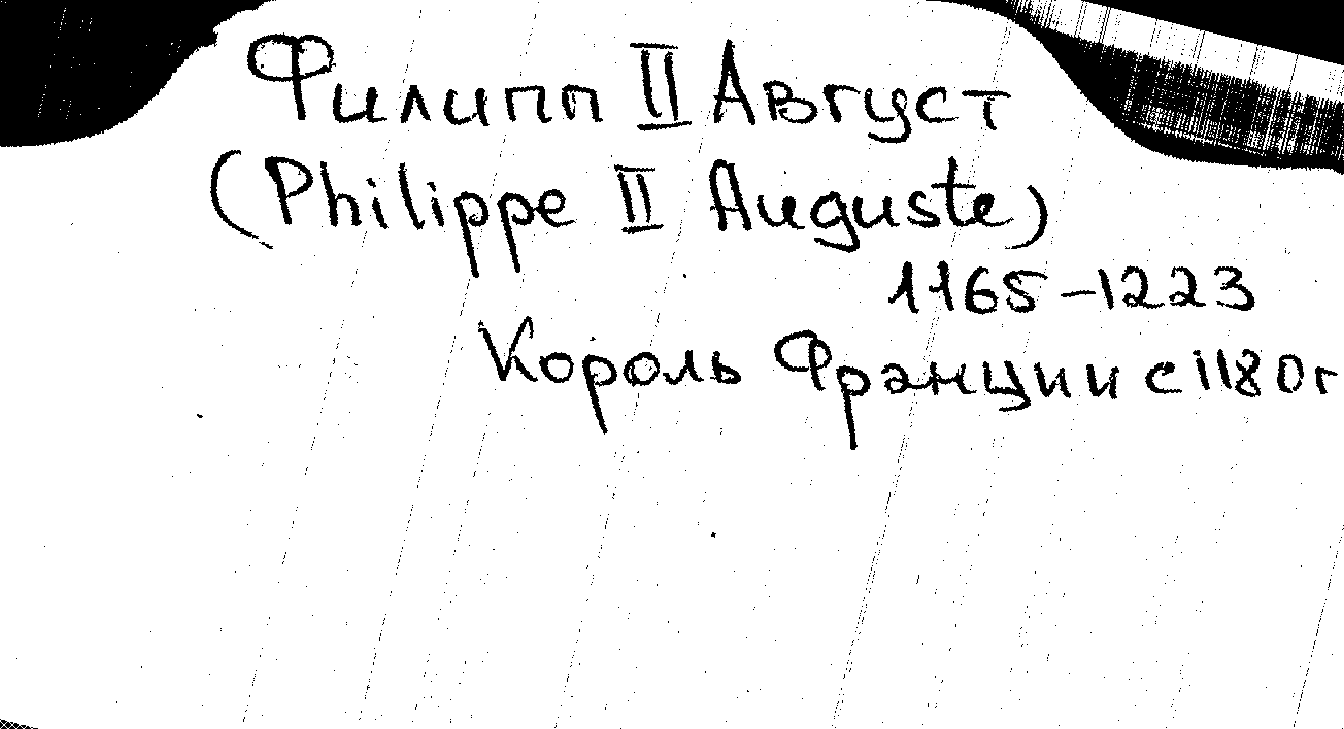 Филипп II Август
(Philippe II Auguste)
1165-1223
Король Франции с 1180 г